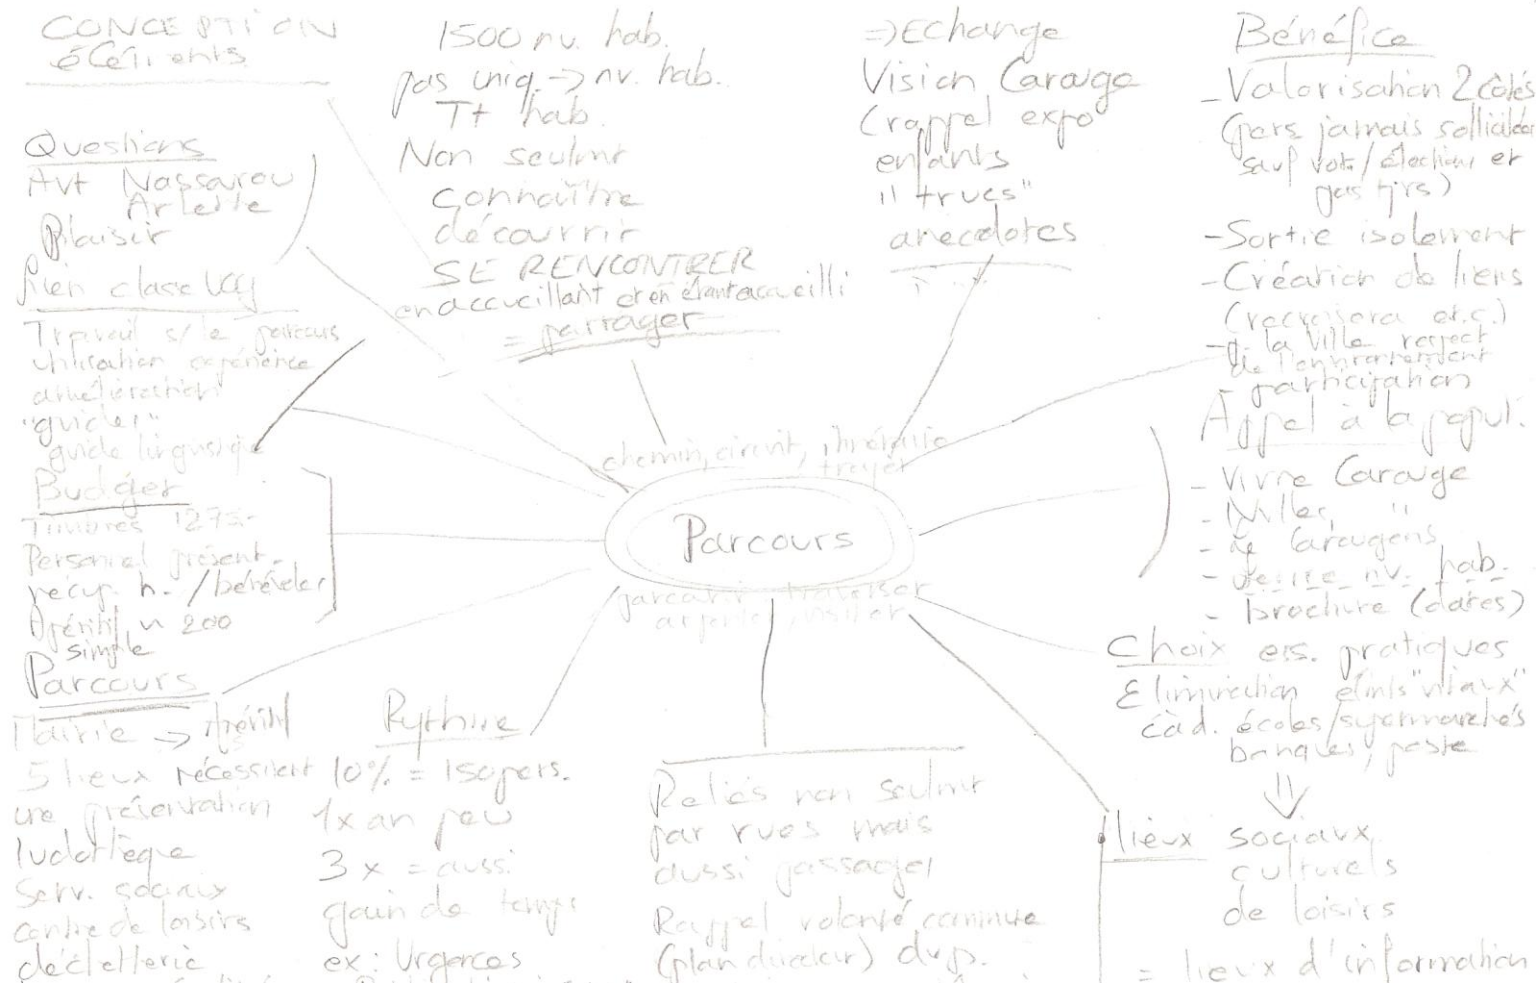 CONCEPTION
Questions
Avt Nassarou
Arlette
Plaisir
Lien classe
Travail s/ le parcours
utilisation expérience
amélioration
"guides"
guide linguistique
Budget
Timbres 1275.-
Personnel présent
récup. h. / bénévoles
Apéritif ~ 200
simple
Parcours
Mairie → Apéritif
5 lieux nécessitent
une présentation
ludothèque
Serv. sociaux
centre de loisirs
déchetterie
1500 nv. hab.
pas uniq. → nv. hab.
Tt hab.
Non seulmt
connaître
découvrir
SE RENCONTRER
en accueillant et en étant accueilli
= partager
⇒ Echange
Vision Carouge
(rappel expo
enfants
"trucs"
anecdotes
chemin, circuit, itinéraire
trajet
Parcours
parcourir traverser
arpenter, visiter
Rythme
10% = 150 pers.
1x an peu
3 x = aussi
gain de temps
ex: Urgences
Reliés non seulmt
par rues mais
aussi passages
Rappel volonté commune
(plan directeur) dvp.
Bénéfice
- Valorisation 2 côtés
(pers jamais sollicitées
sauf vote/élections et
pas tjrs)
- Sortie isolement
- Création de liens
(recroisera etc.)
- la Ville respect
de l'environnement
- participation
Appel à la popul.
- Vivre Carouge
- Milles "
- de Carougeois
- nv. hab.
- brochure (dates)
Choix ess. pratiques
Elimination elmts "vitaux"
càd. écoles/supermarchés
banques, poste
⇓
lieux sociaux,
culturels
de loisirs
= lieux d'information